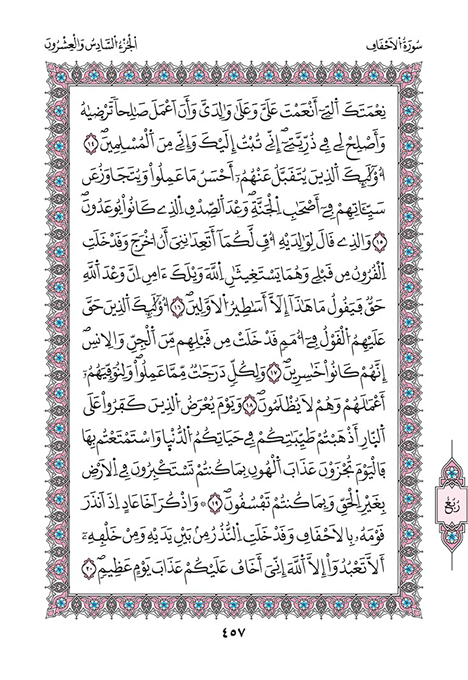 سُورَةُ الْأَحْقَافِ
الْجُزْءُ السَّادِسُ وَالْعِشْرُونَ
نِعْمَتَكَ اَلتِےٓ أَنْعَمْتَ عَلَيَّ وَعَلَىٰ وَٰلِدَيَّ وَأَنَ اَعْمَلَ صَٰلِحاٗ تَرْضَيٰهُ
وَأَصْلِحْ لِے فِے ذُرِّيَّتِيَۖ إِنِّے تُبْتُ إِلَيْكَ وَإِنِّے مِنَ اَلْمُسْلِمِينَۖ ١٤
أُوْلَٰٓئِكَ اَلذِينَ يُتَقَبَّلُ عَنْهُمُۥٓ أَحْسَنُ مَا عَمِلُواْ وَيُتَجَاوَزُ عَن
سَيِّـَٔاتِهِمْ فِےٓ أَصْحَٰبِ اِلْجَنَّةِ وَعْدَ اَلصِّدْقِ اِلذِے كَانُواْ يُوعَدُونَۖ
١٥ وَالذِے قَالَ لِوَٰلِدَيْهِ أُفّٖ لَّكُمَآ أَتَعِدَٰنِنِيَ أَنُ اخْرَجَ وَقَدْ خَلَتِ
اِلْقُرُونُ مِن قَبْلِے وَهُمَا يَسْتَغِيثَٰنِ اِللَّهَ وَيْلَكَ ءَامِنِ اِنَّ وَعْدَ اَللَّهِ
حَقّٞ فَيَقُولُ مَا هَٰذَآ إِلَّآ أَسَٰطِيرُ اُلَاوَّلِينَۖ ١٦ أُوْلَٰٓئِكَ اَلذِينَ حَقَّ
عَلَيْهِمُ اُلْقَوْلُ فِےٓ أُمَمٖ قَدْ خَلَتْ مِن قَبْلِهِم مِّنَ اَلْجِنِّ وَالِانسِۖ
إِنَّهُمْ كَانُواْ خَٰسِرِينَۖ ١٧ وَلِكُلّٖ دَرَجَٰتٞ مِّمَّا عَمِلُواْۖ وَلِنُوَفِّيَهُمُۥٓ
أَعْمَٰلَهُمْ وَهُمْ لَا يُظْلَمُونَۖ ١٨ وَيَوْمَ يُعْرَضُ اُلذِينَ كَفَرُواْ عَلَى
اَلنّ۪ارِ أَذْهَبْتُمْ طَيِّبَٰتِكُمْ فِے حَيَاتِكُمُ اُلدُّنْي۪ا وَاسْتَمْتَعْتُم بِهَا
فَالْيَوْمَ تُجْزَوْنَ عَذَابَ اَلْهُونِ بِمَا كُنتُمْ تَسْتَكْبِرُونَ فِے اِلَارْضِ
بِغَيْرِ اِلْحَقِّ وَبِمَا كُنتُمْ تَفْسُقُونَۖ ١٩ ۞ وَاذْكُرَ اَخَا عَادٍ اِذَ اَنذَرَ
قَوْمَهُۥ بِالَاحْقَافِ وَقَدْ خَلَتِ اِلنُّذُرُ مِنۢ بَيْنِ يَدَيْهِ وَمِنْ خَلْفِهِۦٓ
أَلَّا تَعْبُدُوٓاْ إِلَّا اَللَّهَ إِنِّيَ أَخَافُ عَلَيْكُمْ عَذَابَ يَوْمٍ عَظِيمٖۖ ٢٠
رُبُع
٤٥٧